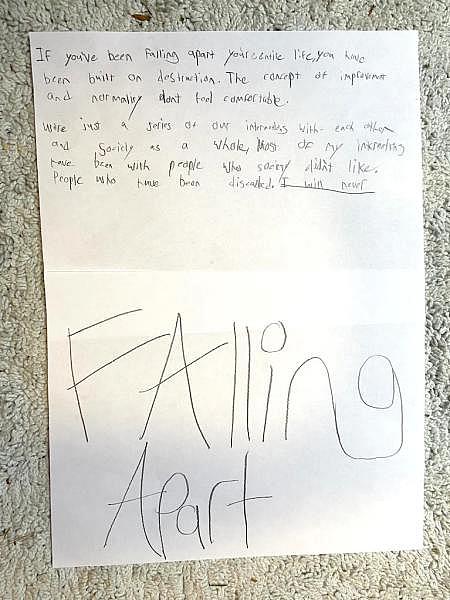 If you've been falling apart your entire life, you have
been built on destruction. The concept of improvement
and normality dont feel comfortable.
We're just a series of our interactings with each other
and society as a whole, Most of my interacting
have been with people who society didn't like.
People who have been discarded. I will never
FAlling
Apart